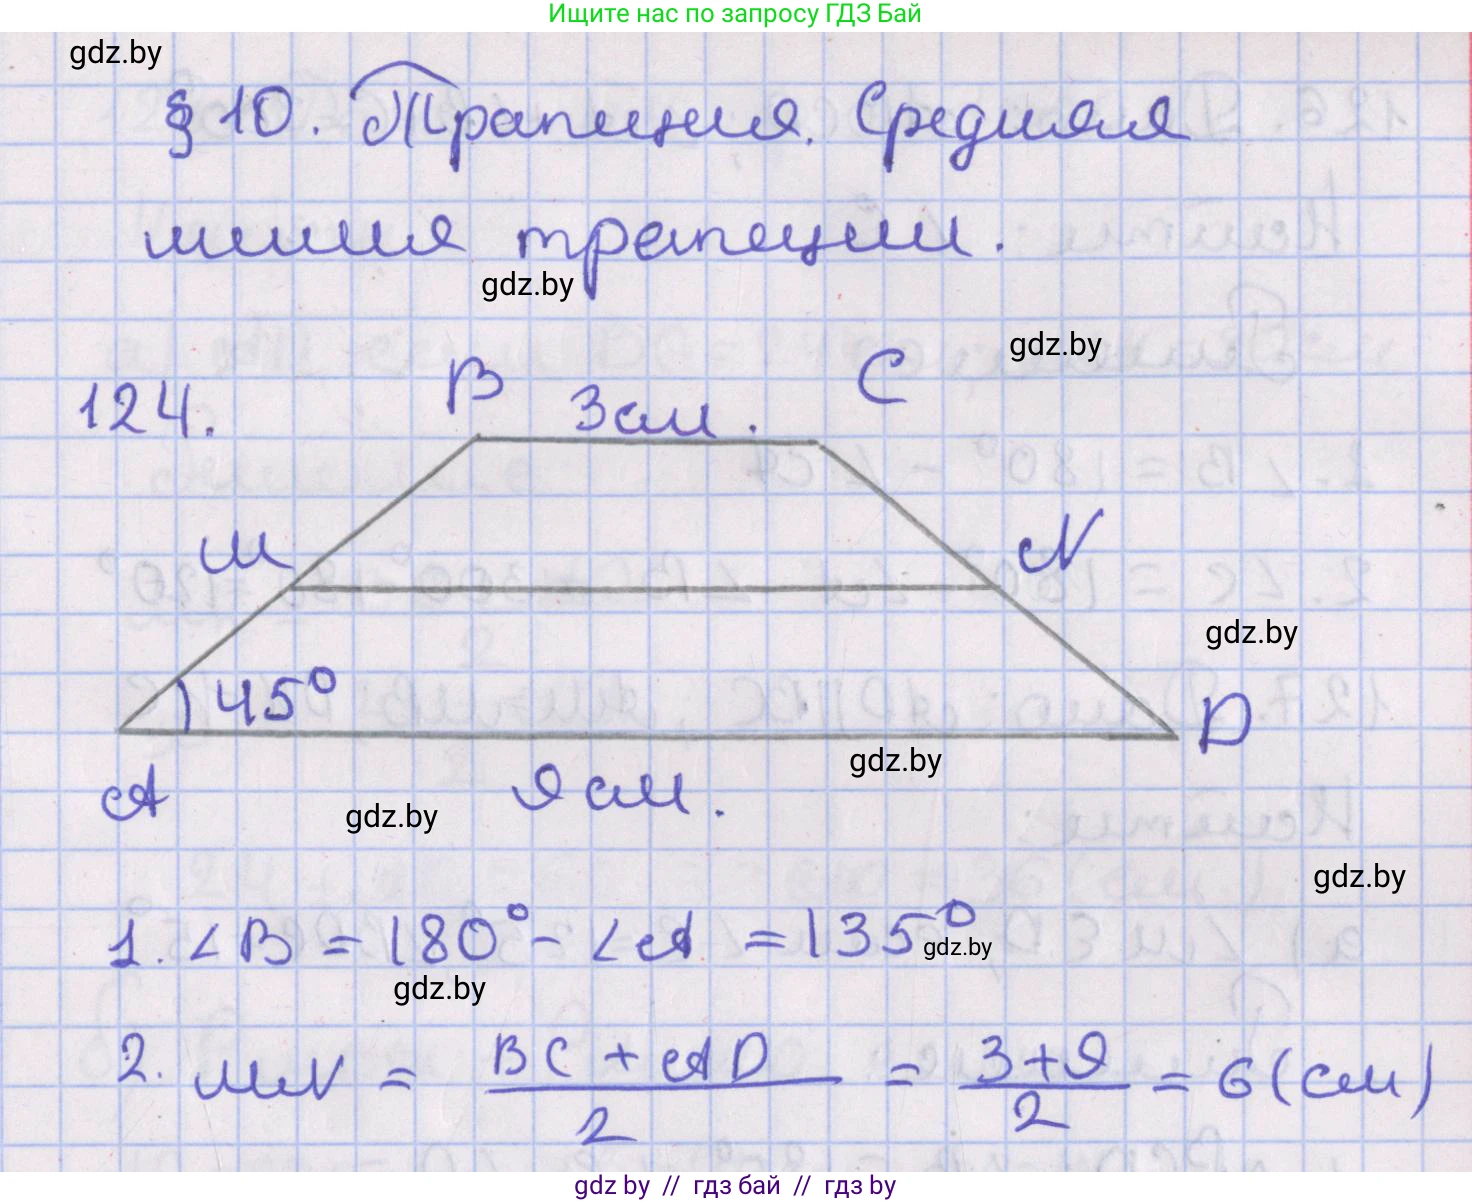 Ищите нас по запросу ГДЗ Бай
gdz.by
§ 10. Трапеция. Средняя
линия трапеции.
gdz.by
gdz.by
124.
B 3 см. C
M N
gdz.by
45°
A 9 см. D
gdz.by
gdz.by
gdz.by
1. ∠B = 180° - ∠A = 135°
gdz.by
gdz.by
2. MN = (BC + AD)/2 = (3+9)/2 = 6 (см)
gdz.by // гдз бай // гдз by